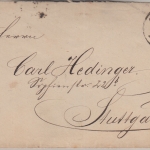 Herrn
Carl Hedinger.
Stuttga